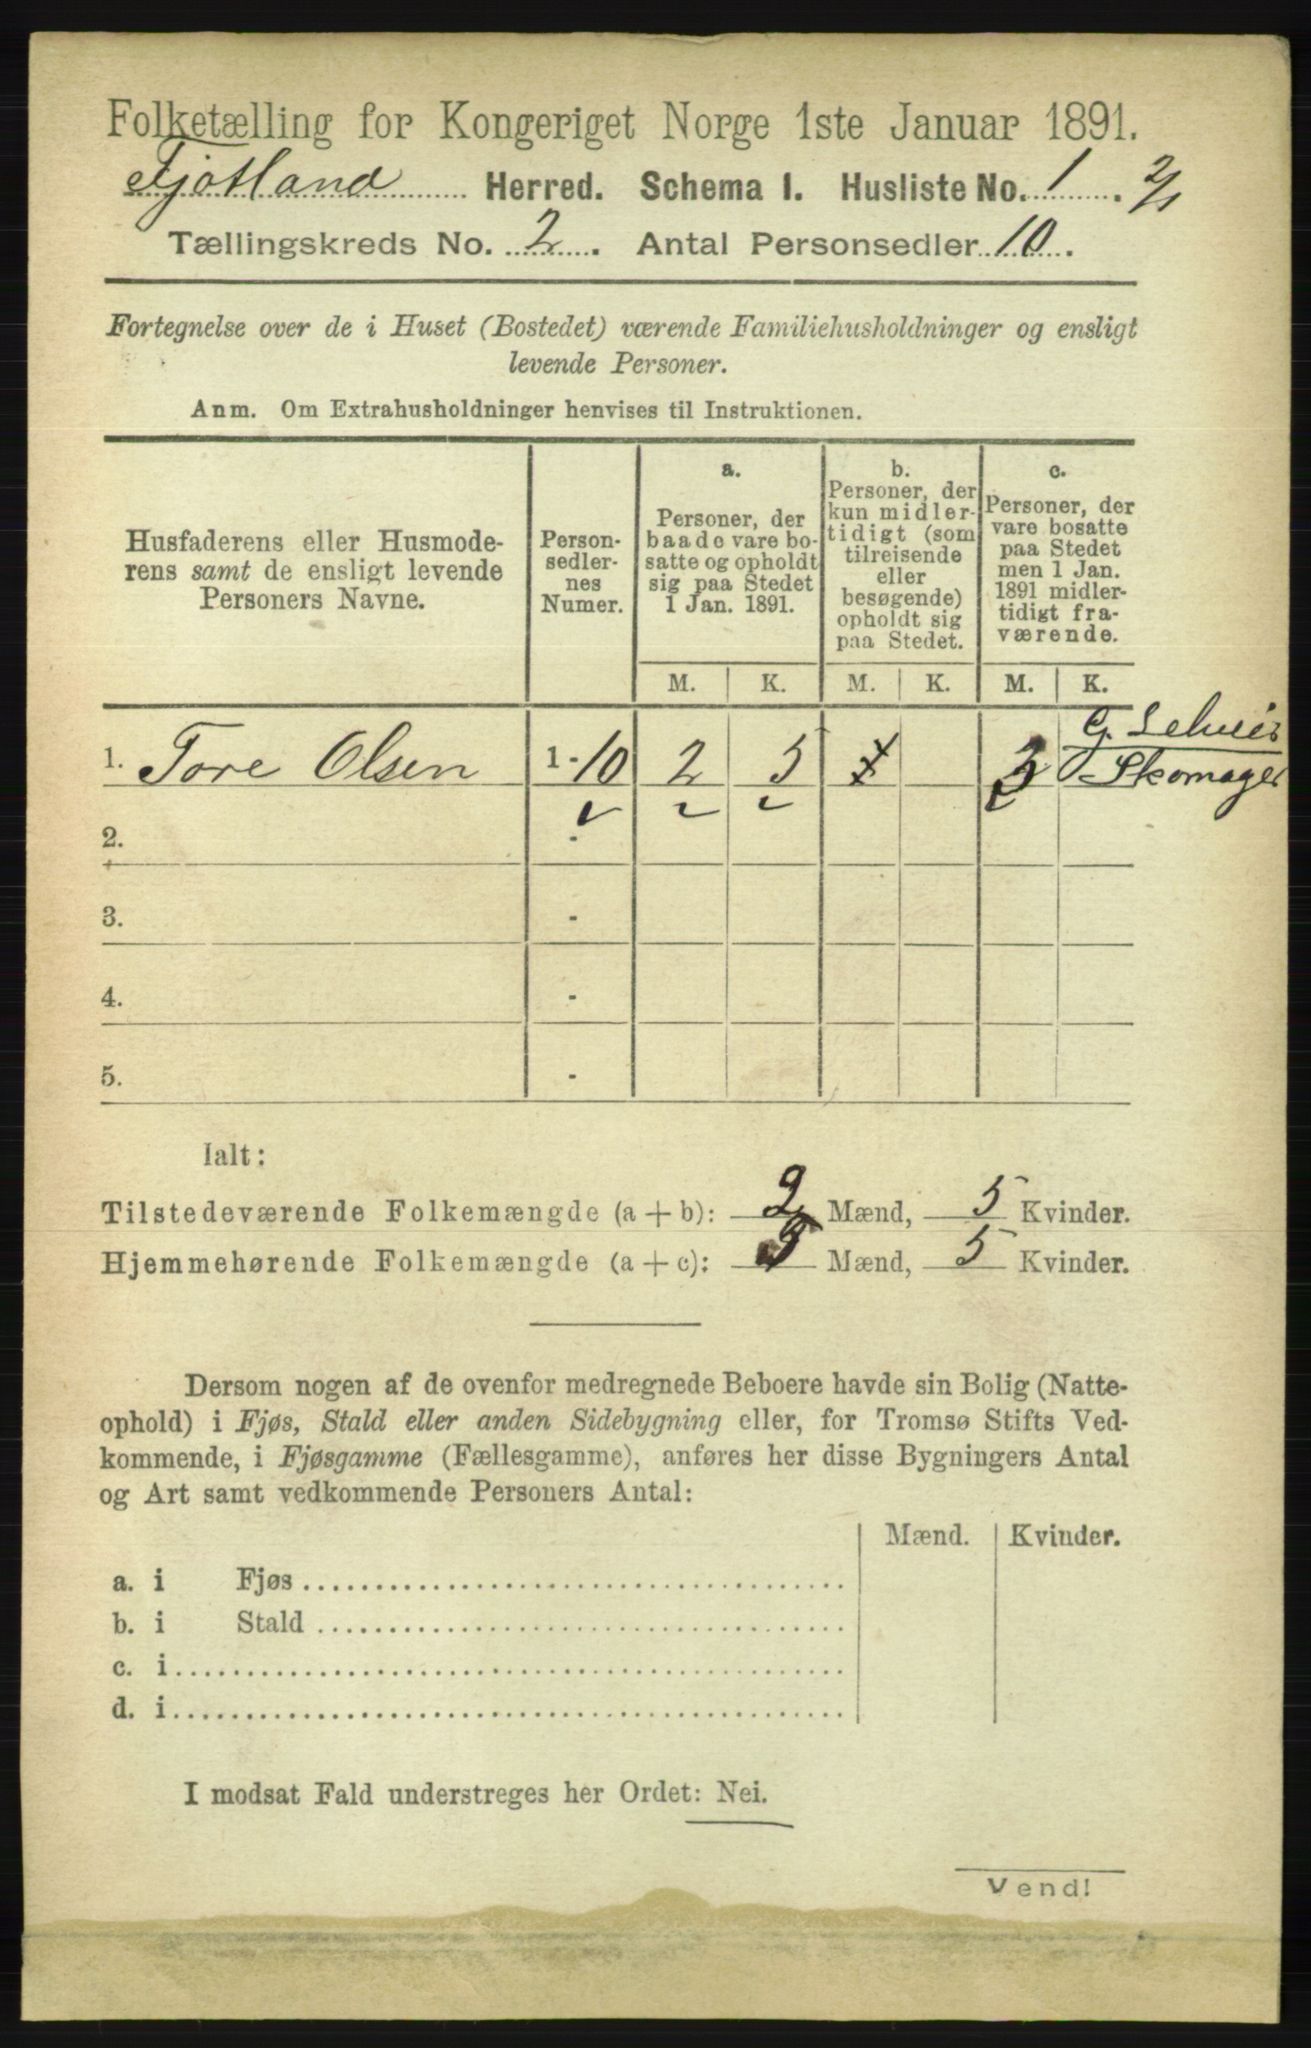 Folketælling for Kongeriget Norge 1ste Januar 1891.
Fjotland Herred. Schema I. Husliste No. 1. 2/1
Tællingskreds No. 2. Antal Personsedler 10.
Fortegnelse over de i Huset (Bostedet) værende Familiehusholdninger og ensligt
levende Personer.
Anm. Om Extrahusholdninger henvises til Instruktionen.
Husfaderens eller Husmode-
rens samt de ensligt levende
Personers Navne.
Person-
sedler-
nes
Numer.
a.
Personer, der
baade vare bo-
satte og opholdt
sig paa Stedet
1 Jan. 1891.
b.
Personer, der
kun midler-
tidigt (som
tilreisende
eller
besøgende)
opholdt sig
paa Stedet.
c.
Personer, der
vare bosatte
paa Stedet
men 1 Jan.
1891 midler-
tidigt fra-
værende.
M. K. M. K. M. K.
G. Selveier
1. Tore Olsen 1-10 2 5 3 Skomager
2. -
3. -
4. -
5. -
Ialt:
Tilstedeværende Folkemængde (a+b): 2 Mænd, 5 Kvinder.
Hjemmehørende Folkemængde (a+c): 5 Mænd, 5 Kvinder.
Dersom nogen af de ovenfor medregnede Beboere havde sin Bolig (Natte-
ophold) i Fjøs, Stald eller anden Sidebygning eller, for Tromsø Stifts Ved-
kommende, i Fjøsgamme (Fællesgamme), anføres her disse Bygningers Antal
og Art samt vedkommende Personers Antal:
Mænd. Kvinder.
a. i Fjøs
b. i Stald
c. i
d. i
I modsat Fald understreges her Ordet: Nei.
Vend!